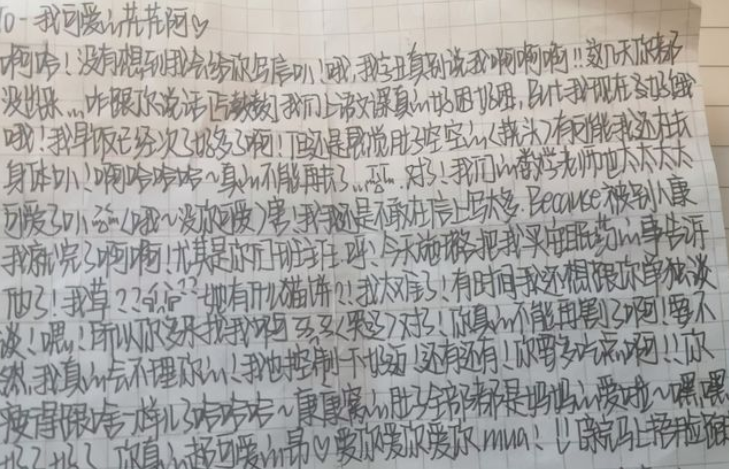 To-我可爱的花花阿♡
啊哈！没有想到我会给你写信叭！哦，我字丑真别说我啊啊啊！！这几天你都
没出来...咋跟你说话 我们上语文课真的好困好困，而且我现在好饿
哦！我早饭已经次了好多了啊！但还是感觉肚子空空的(挠头)有可能我还在长
身体叭！啊哈哈哈～真的不能再长了... 对了！我们的数学老师他太太太太
可爱了叭(哦～没你可爱)害！我我还是不敢在信上写太多，Because被别人康
我就完了啊啊！尤其是你们班主任 今天 把我买安眠药的事告诉
他了！我草？？ ??她有什么猫饼?！我太难了！有时间我还想跟你单独谈
谈！嗯！所以你多来找我啊 (哭了)对了！你真的不能再割了啊！要不
然，我真的会不理你的！我也控制一下好迈！还有还有！你要多吃东西啊！！你
瘦得跟啥一样儿了哈哈哈～康康窝的肚子全部都是妈妈的爱啦～嘿嘿
好了好了，你真的超可爱的昂♡爱你爱你爱你mua！！